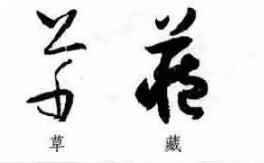 草 藏
草 藏